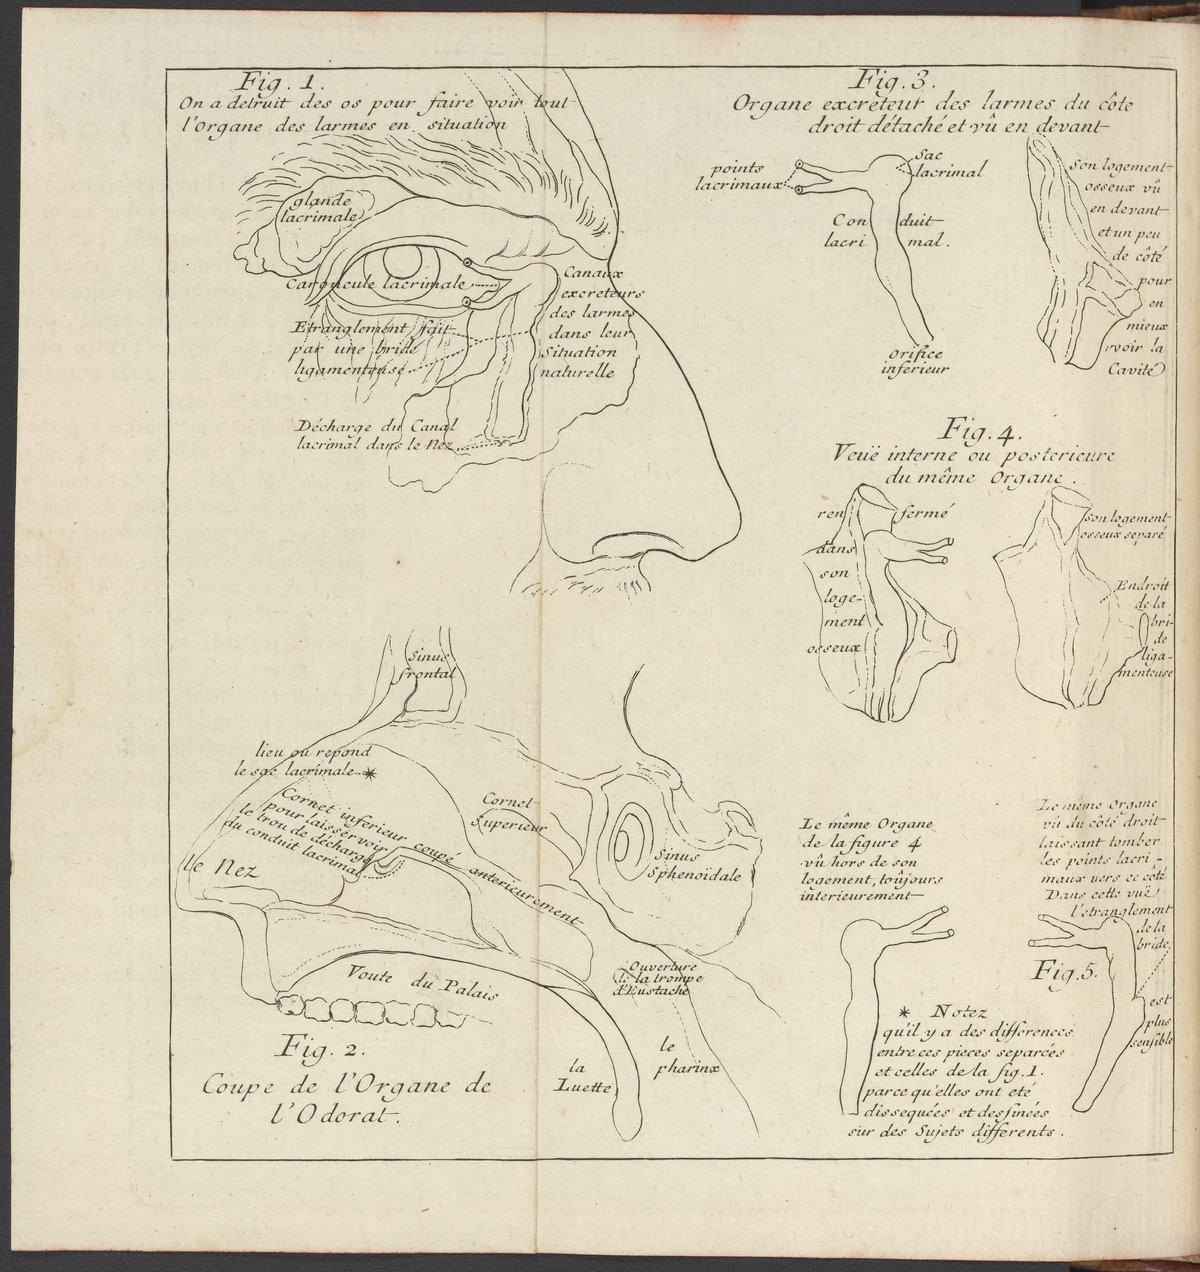 Fig. 1.
On a detruit des os pour faire voir tout
l'Organe des larmes en situation
glande
lacrimale
Caroncule lacrimale
Canaux
excreteurs
des larmes
dans leur
Situation
naturelle
Etranglement fait
par une bride
ligamenteuse
Décharge du Canal
lacrimal dans le Nez
Fig. 3.
Organe excreteur des larmes du côte
droit détaché et vû en devant
points
lacrimaux
Sac
lacrimal
Con duit
lacri mal.
orifice
inferieur
son logement
osseux vû
en devant
et un peu
de côté
pour
en
mieux
voir la
Cavité
Fig. 4.
Veuë interne ou posterieure
du même Organe.
ren fermé
dans
son
loge-
ment
osseux
son logement
osseux separé
Endroit
de la
bri-
de
liga-
menteuse
sinus
frontal
lieu ou repond
le sac lacrimale
Cornet inferieur coupé anterieurement
pour laisser voir
le trou de décharge
du conduit lacrimal
le Nez
Cornet
Superieur
Sinus
Sphenoidale
Ouverture
de la trompe
d'Eustache
Voute du Palais
la
Luette
le
pharinx
Fig. 2.
Coupe de l'Organe de
l'Odorat.
Le même Organe
de la figure 4
vû hors de son
logement, toûjours
interieurement
Le même Organe
vû du côté droit
laissant tomber
les points lacri-
maux vers ce côté
Dans cette vuë
l'etranglement
de la
bride
est
plus
sensible
Fig. 5.
* Notez
qu'il y a des differences
entre ces pieces separées
et celles de la fig. 1.
parce qu'elles ont eté
dissequées et dessinées
sur des Sujets differents.